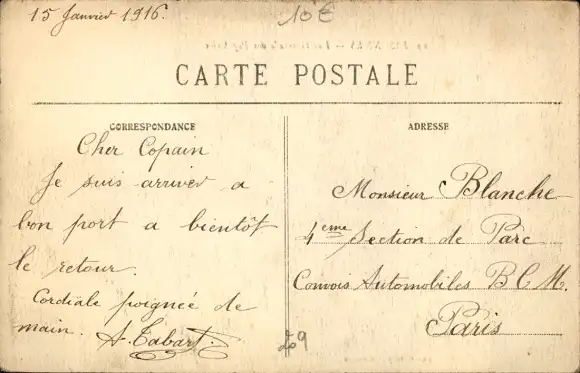 15 Janvier 1916.
10€
CARTE POSTALE
CORRESPONDANCE
Cher Copain
Je suis arriver a
bon port a bientôt
le retour.
Cordiale poignée de
main. A. Tabart.
ADRESSE
Monsieur Blanche
4eme Section de Parc
Convois Automobiles B C M.
Paris